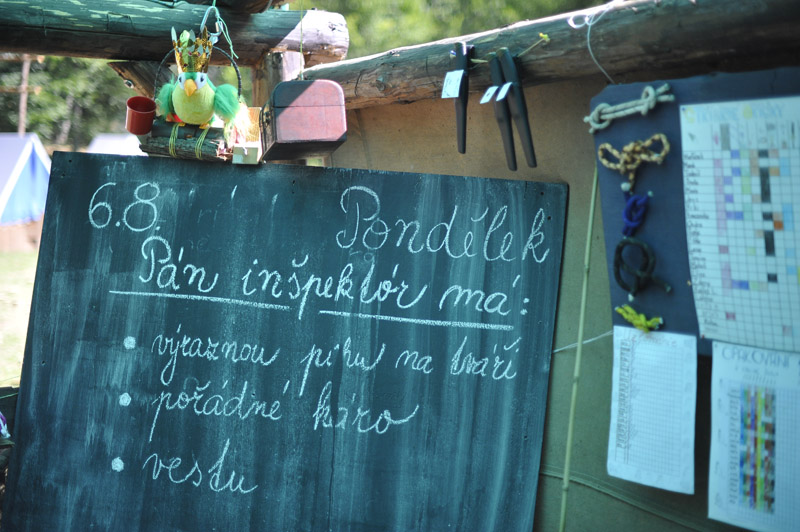 6.8. Pondělek
Pán inšpektór má:
• výraznou pihu na tváří
• pořádné káro
• vestu